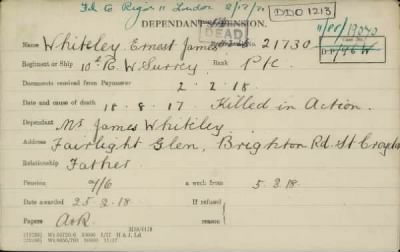 DDO 1213
DEPENDANT'S PENSION.
DEAD
Name Whiteley Ernest James 21730
Case No.
Regiment or Ship 10th R. W Surrey Rank Pte
Documents received from Paymaster 2.2.18
Date and cause of death 18.8.17 Killed in Action.
Dependant Mr James Whiteley
Address Fairlight Glen, Brighton Rd. Sth Croydon
Relationship Father
Pension 7/6 a week from 5.3.18.
Date awarded 25.2.18 If refused
Papers reason